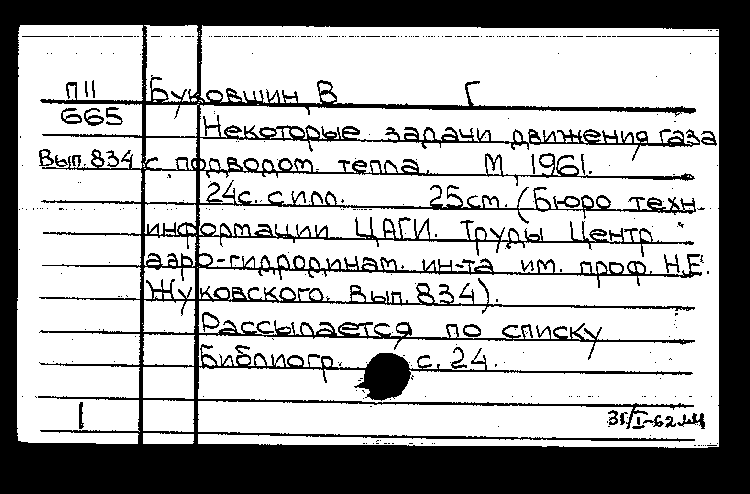 П11 Буковшин, В Г
665 Некоторые задачи движения газа
Вып. 834 с подводом тепла. М, 1961.
24с. с илл. 25см. (Бюро техн
информации ЦАГИ. Труды Центр.
аэро-гидродинам. ин-та им. проф. Н.Е.
Жуковского. Вып. 834).
Рассылается по списку
Библиогр. с. 24.
1 31/I-62